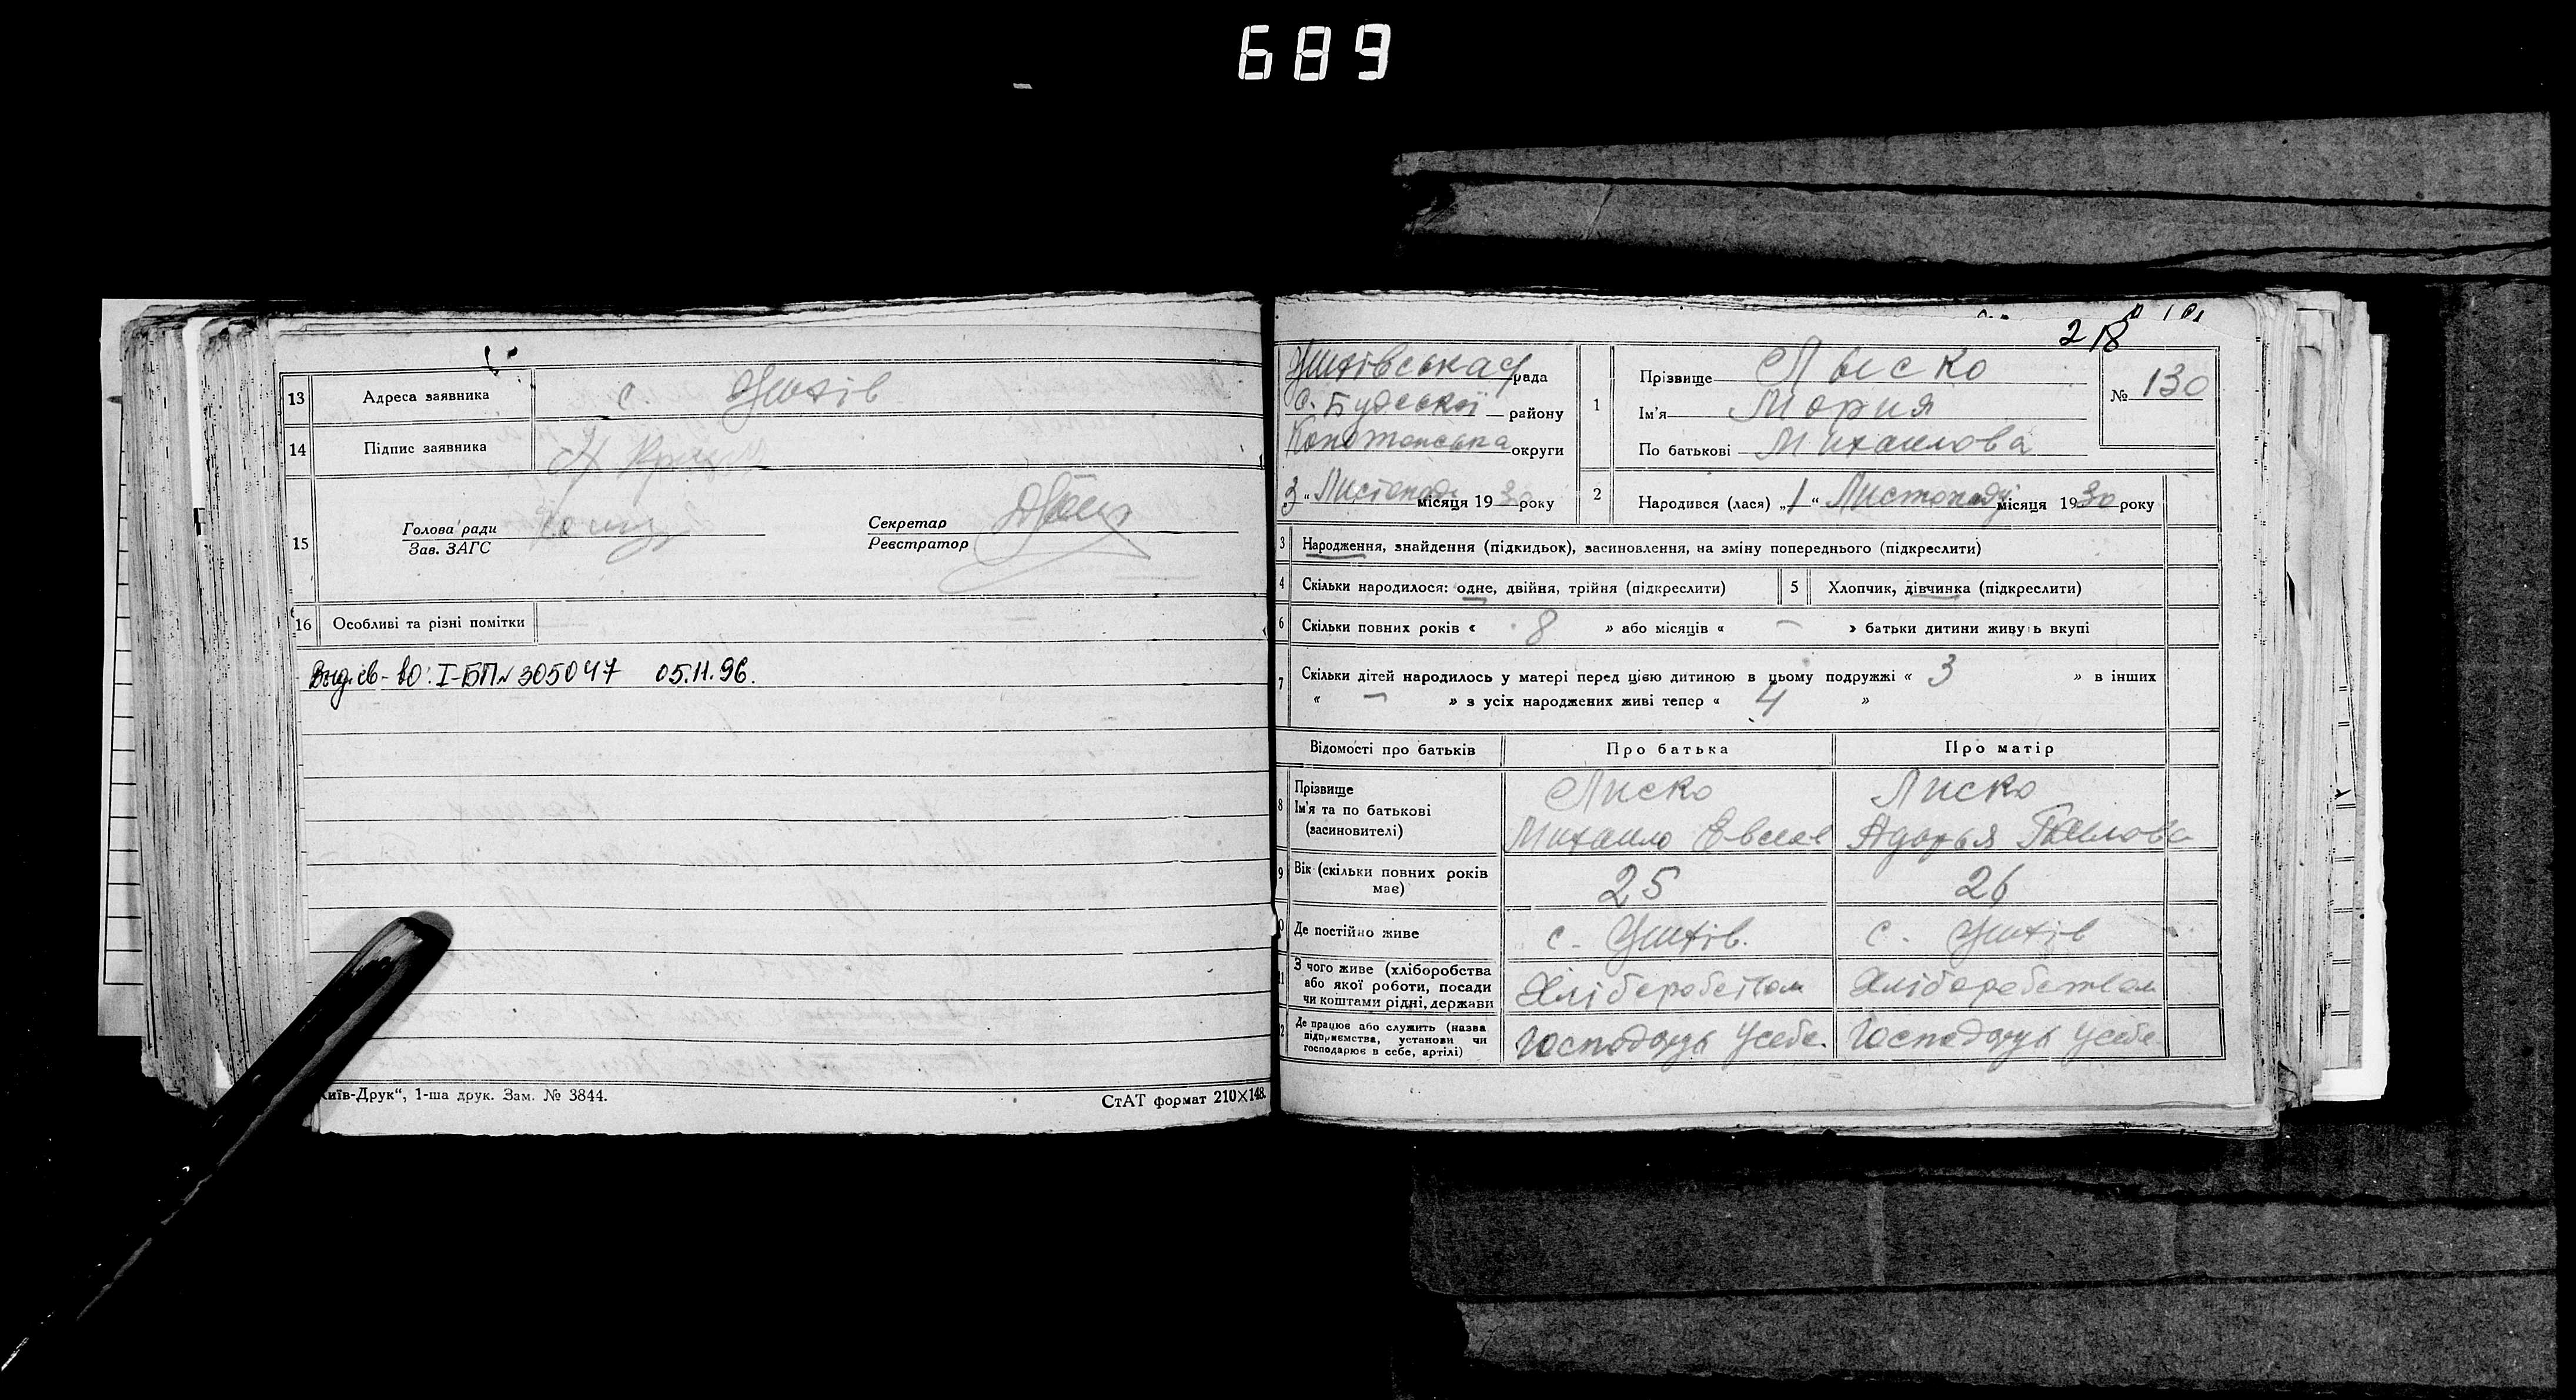 689
13 Адреса заявника с. Уютів
14 Підпис заявника
15 Голова ради Зав. ЗАГС Секретар Реєстратор
16 Особливі та різні помітки
Выд. св-во: I-БП № 305047 05.11.96.
"Київ-Друк", 1-ша друк. Зам. № 3844. СтАТ формат 210×148.
218
рада
С. Будської району
Конотопська округи
3 " Листопада місяця 1930 року
1 Прізвище Лыско
Ім'я Мория
По батькові Михаилова
№ 130
2 Народився (лася) „1" Листопада місяця 1930 року
3 Народження, знайдення (підкидьок), засиновлення, на зміну попереднього (підкреслити)
4 Скільки народилося: одне, двійня, трійня (підкреслити) 5 Хлопчик, дівчинка (підкреслити)
6 Скільки повних років « 8 » або місяців « — » батьки дитини живуть вкупі
7 Скільки дітей народилось у матері перед цією дитиною в цьому подружжі « 3 » в інших
« — » з усіх народжених живі тепер « 4 »
Відомості про батьків Про батька Про матір
8 Прізвище Ім'я та по батькові (засиновителі) Лиско Михаило Лиско
9 Вік (скільки повних років має) 25 26
Де постійно живе с. с.
З чого живе (хліборобства або якої роботи, посади чи коштами рідні, держави Хліборобством Хліборобством
Де працює або служить (назва підприємства, установи чи господарює в себе, артілі) Господарує усебе. Господарує усебе